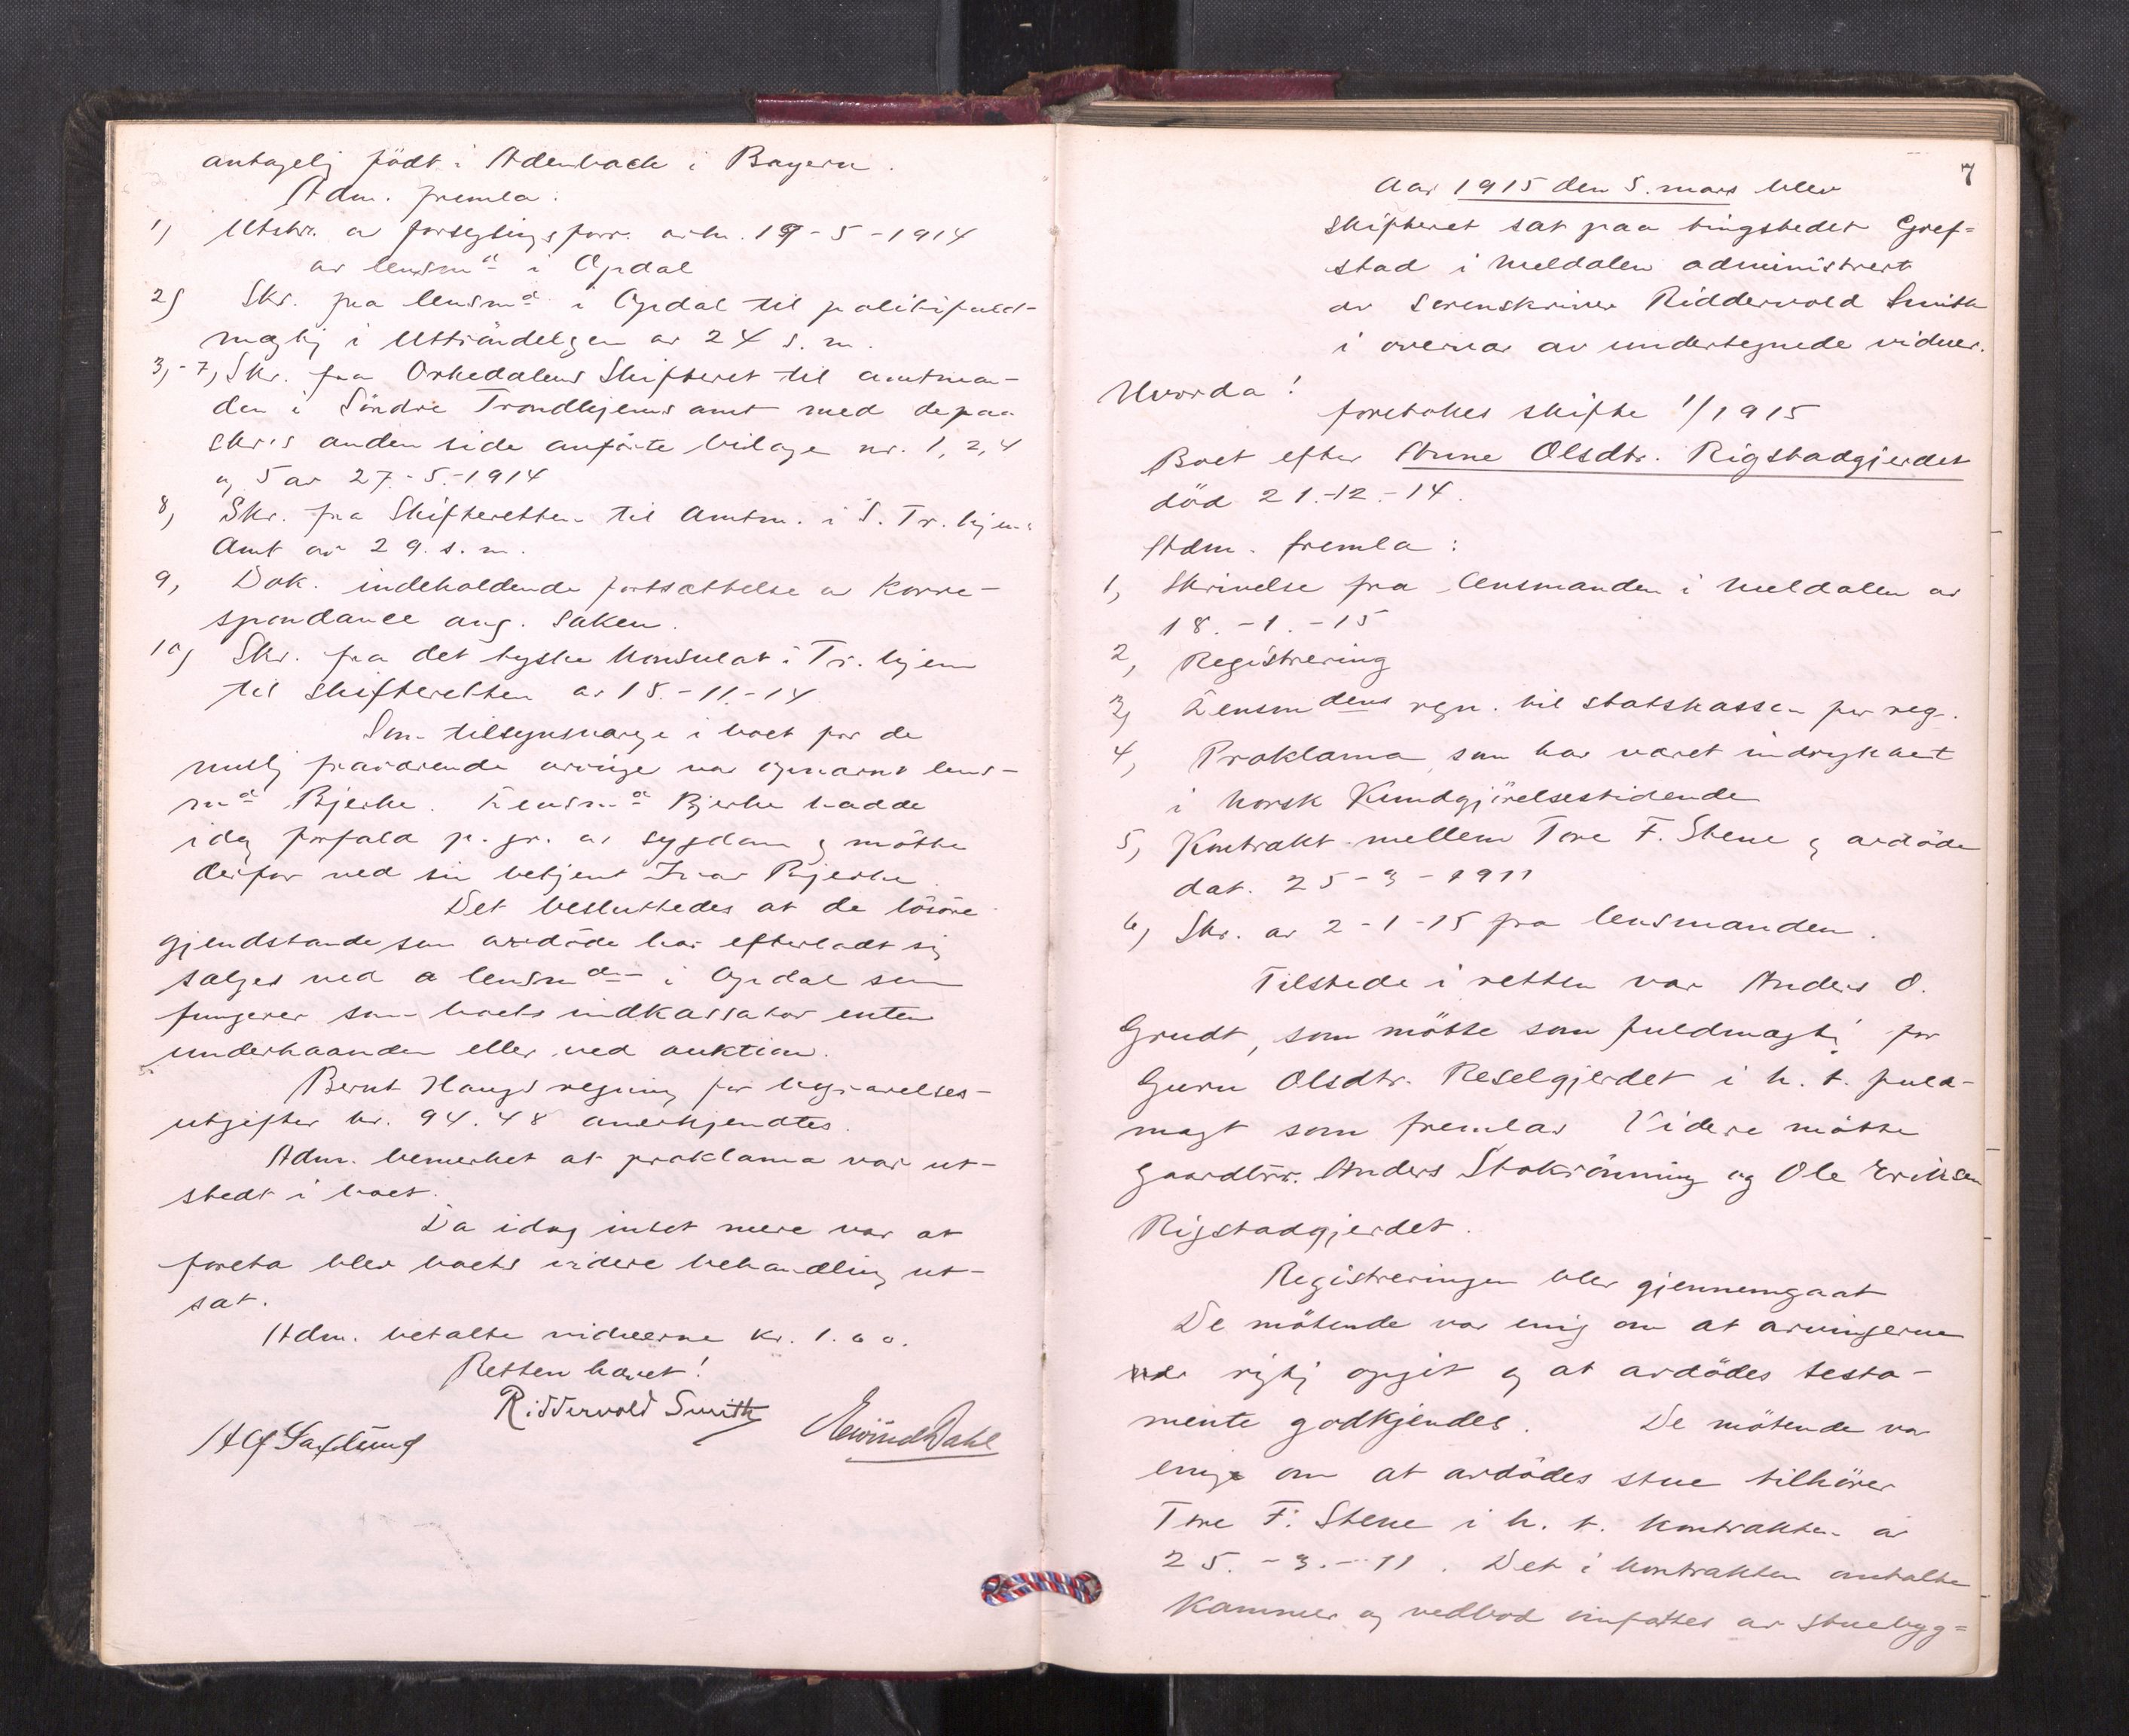 antagelig födt i Adenbach i Bayern.
Adm. fremla:
1) Utskr. av forseglingsforr. avh. 19-5-1914
av lensmd i Opdal
2) Skr. fra lensmd i Opdal til politifuld-
mægtig i Uttröndelagen av 24 s. m.
3,-7, Skr. fra Orkedalens Skifteret til amtman-
den i Söndre Trondhjems amt med de paa
skr.s anden side anförte bilage nr. 1, 2, 4
og 5 av 27.-5.-1914
8, Skr. fra Skifteretten til Amtm. i S. Tr.hjems
Amt av 29. s. m.
9, Dok. indeholdende fortsættelse av Korre-
spondance ang. saken.
10, Skr. fra det tyske Konsulat i Tr.hjem
til skifteretten av 18.-11.-14.
Som tilsynsværge i boet for de
mulig fraværende arvinge var opnævnt lens-
md Bjerke. Lensmd Bjerke hadde
idag forfald p. gr. av sygdom og mötte
derfor ved sin betjent Ivar Bjerke.
Det besluttedes at de lösöre
gjendstande som avdöde har efterladt sig
sælges ved a lensmden i Opdal som
fungerer som boets indkassator enten
underhaanden eller ved auktion.
Bernt Haugs regning for begravelses-
utgifter kr. 94.48 anerkjendtes.
Adm. bemerket at proklama var ut-
stedt i boet.
Da idag intet mere var at
foreta blev boets videre behandling ut-
sat.
Adm. betalte vidnerne kr. 1.60.
Retten hævet!
Riddervold Smith
Alf
Dahl
7
Aar 1915 den 5. mars blev
skifteret sat paa tingstedet Gref-
stad i Meldalen administrert
av sorenskriver Riddervold Smith
i overvær av undertegnede vidner.
Hvorda!
foretokes skifte 1/1915
Boet efter Anne Olsdtr. Rigstadgjerdet
död 21.-12.-14.
Adm. fremla:
1, Skrivelse fra lensmanden i Meldalen av
18.-1.-15
2, Registrering
3, Lensmdens regn. til statskassen for reg.
4, Proklama som har været indrykket
i Norsk Kundgjörelsestidende
5, Kontrakt mellem Tore F. Stene og avdöde
dat. 25-3-1911
6, Skr. av 2-1-15 fra lensmanden.
Tilstede i retten var Anders O.
Grudt, som mötte som fuldmægtig for
Guru Olsdtr. Reselgjerdet i h. t. fuld-
magt som fremlas. Videre mötte
gaardbr. Anders Stokrönning og Ole Eriksen
Rigstadgjerdet.
Registreringen blev gjennemgaat
De mötende var enig om at arvingerne
rigtig opgit og at avdödes testa-
mente godkjendes. De mötende var
enige om at avdödes stue tilhörer
Tore F. Stene i h. t. kontrakten av
25.-3.-11. Det i kontrakten omtalte
Kammer og vedbod omfattes av stuebyg-